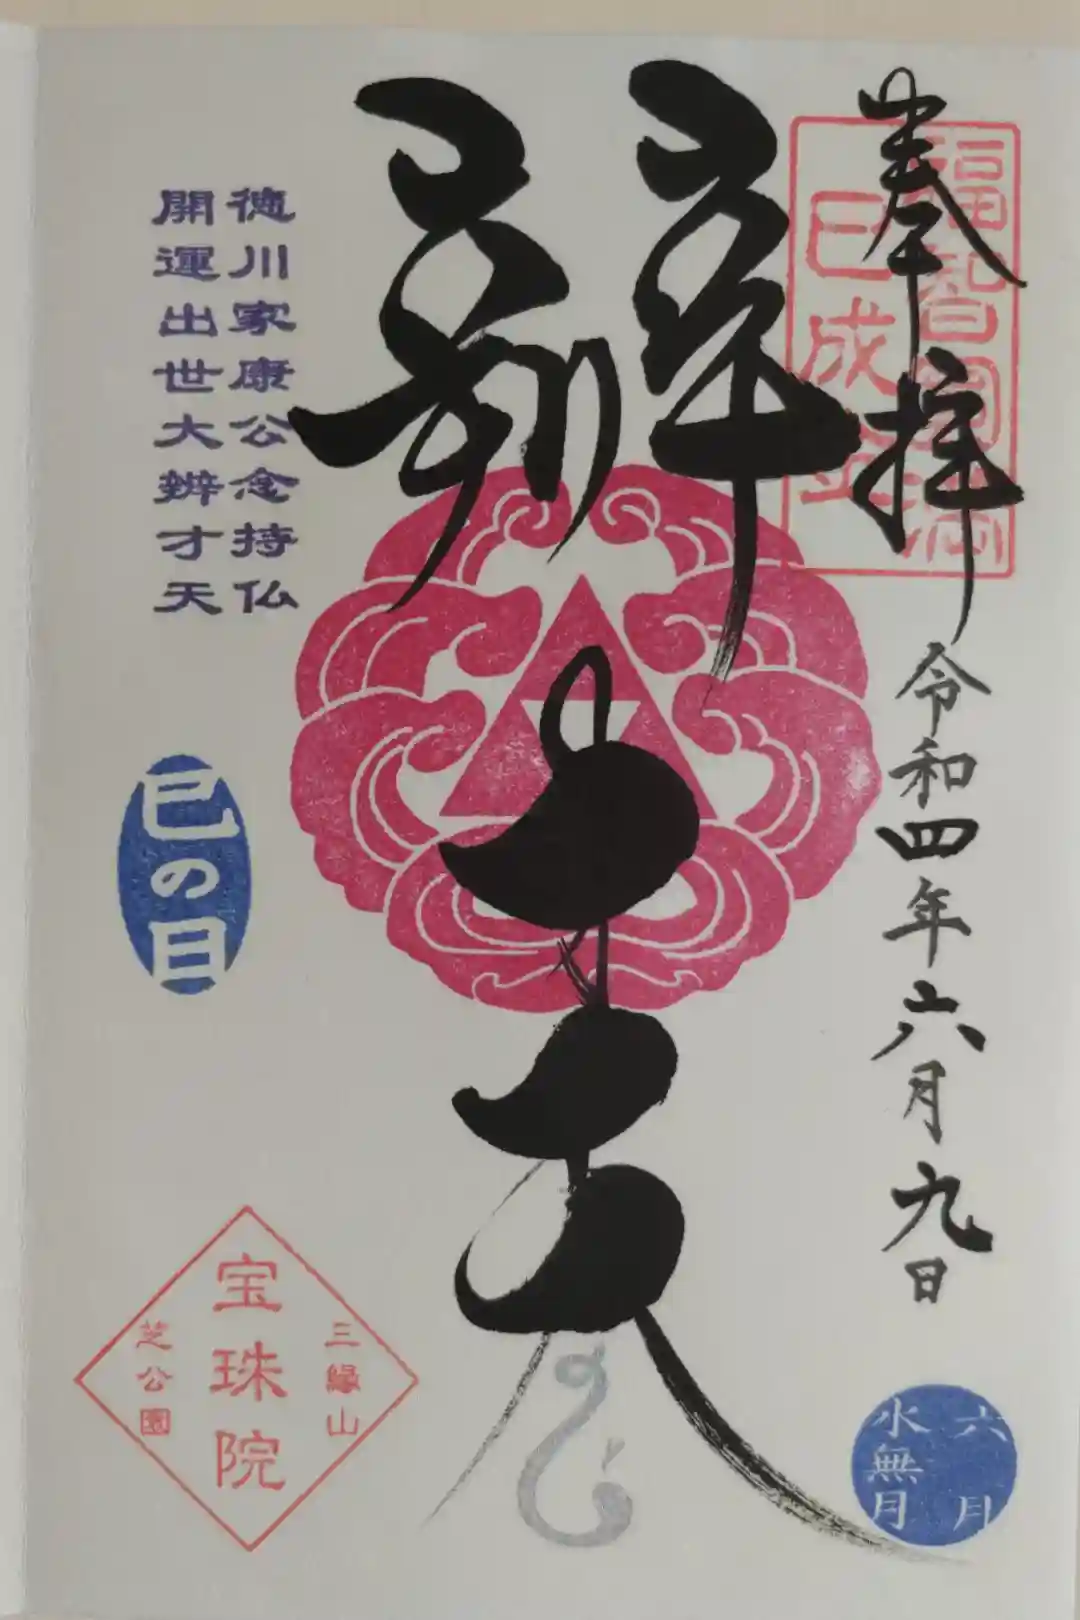 奉拝
福智円満
巳成金
令和四年六月九日
六月
水無月
辨才天
徳川家康公念持仏
開運出世大辨才天
巳の日
三縁山
宝珠院
芝公園